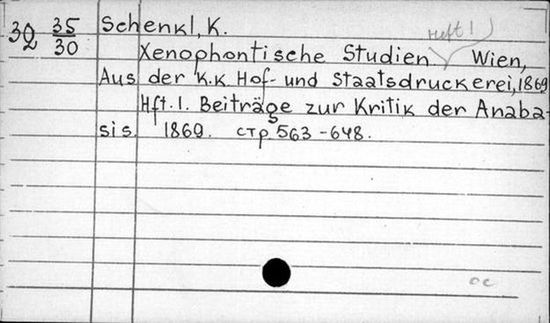 30 35 Schenkl, K.
2 30
Heft 1
Xenophontische Studien Wien,
Aus der K.K Hof- und Staatsdruckerei, 1869
Hft. 1. Beiträge zur Kritik der Anaba-
sis 1869. стр. 563-648.